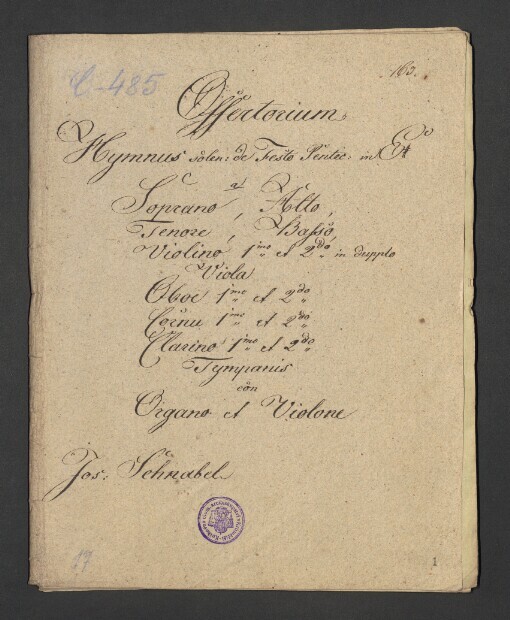 C-485
163.
Offertorium
Hymnus solen: de Festo Pentec: in
a
Soprano, Alto,
Tenore, Basso,
Violino 1mo et 2do in dupplo
Viola
Oboe 1mo et 2do
Cornu 1mo et 2do
Clarino 1mo et 2do
Tympanis
con
Organo et Violone
Jos: Schnabel
17
1